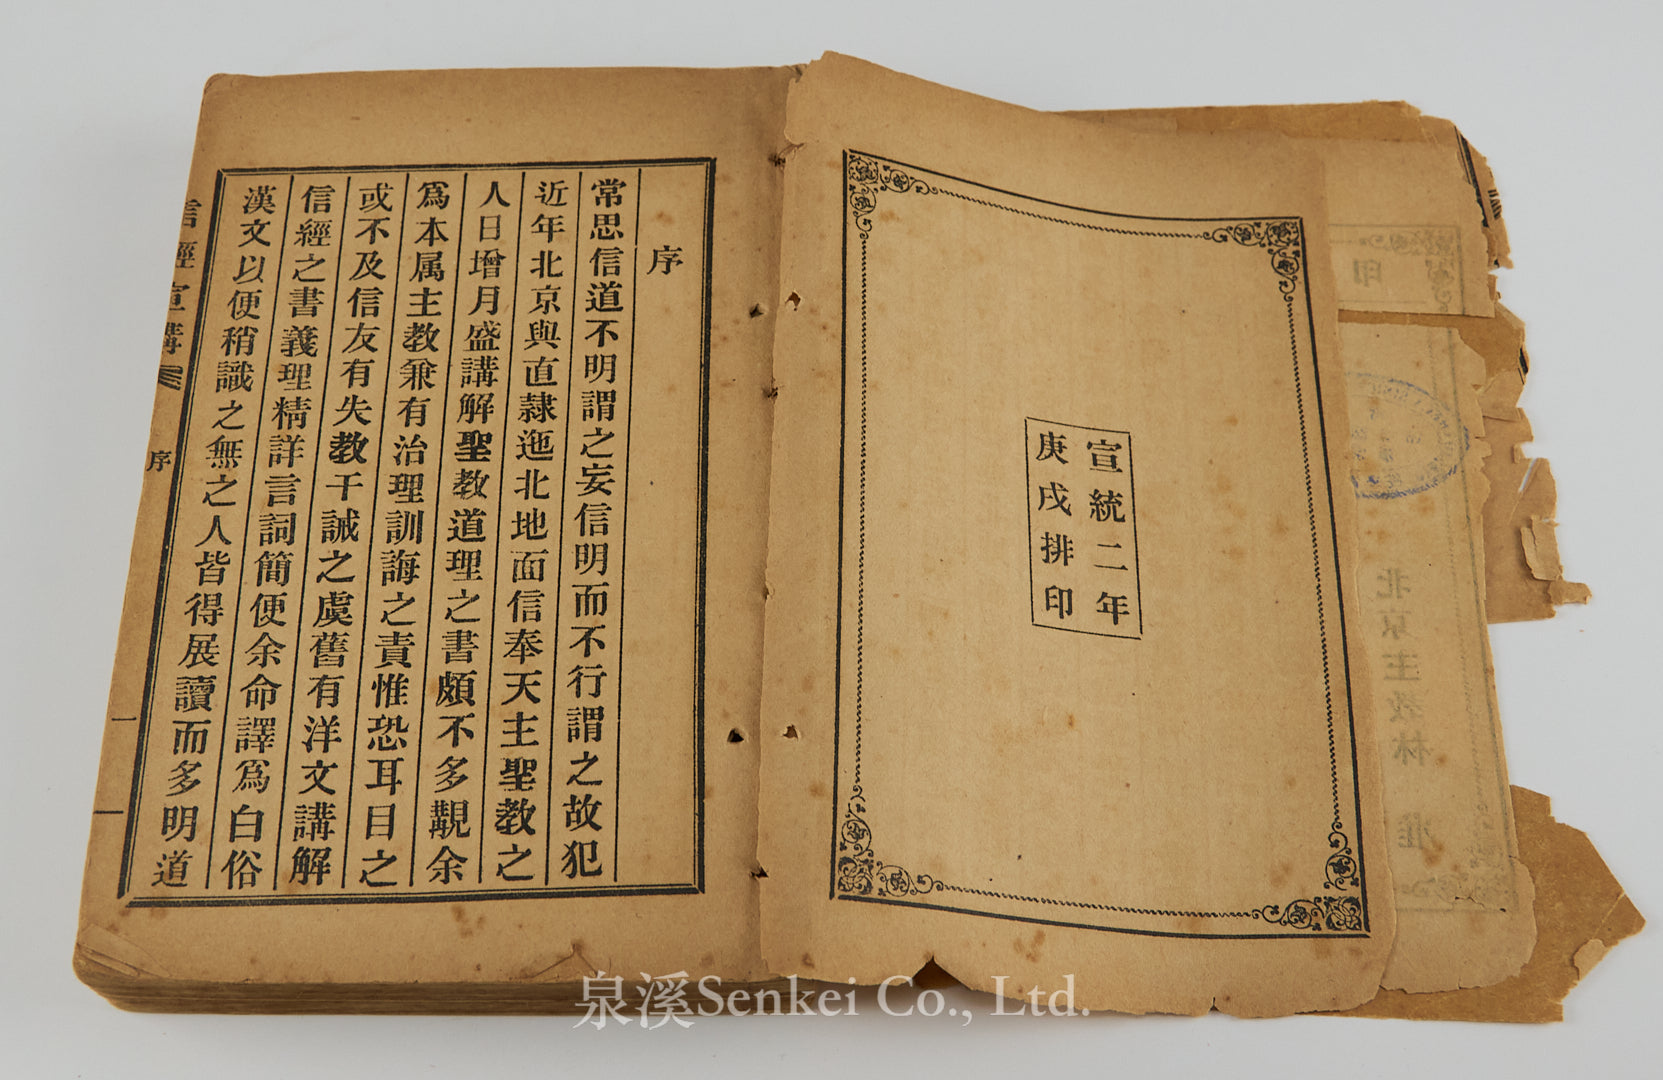 宣統二年
庚戌排印
序
常思信道不明謂之妄信明而不行謂之故犯
近年北京與直隸迤北地面信奉天主聖教之
人日增月盛講解聖教道理之書頗不多覯余
爲本属主教兼有治理訓誨之責惟恐耳目之
或不及信友有失教干誡之虞舊有洋文講解
信經之書義理精詳言詞簡便余命譯爲白俗
漢文以便稍識之無之人皆得展讀而多明道
信經宣講
序
印
北京主教林 准
泉溪Senkei Co., Ltd.